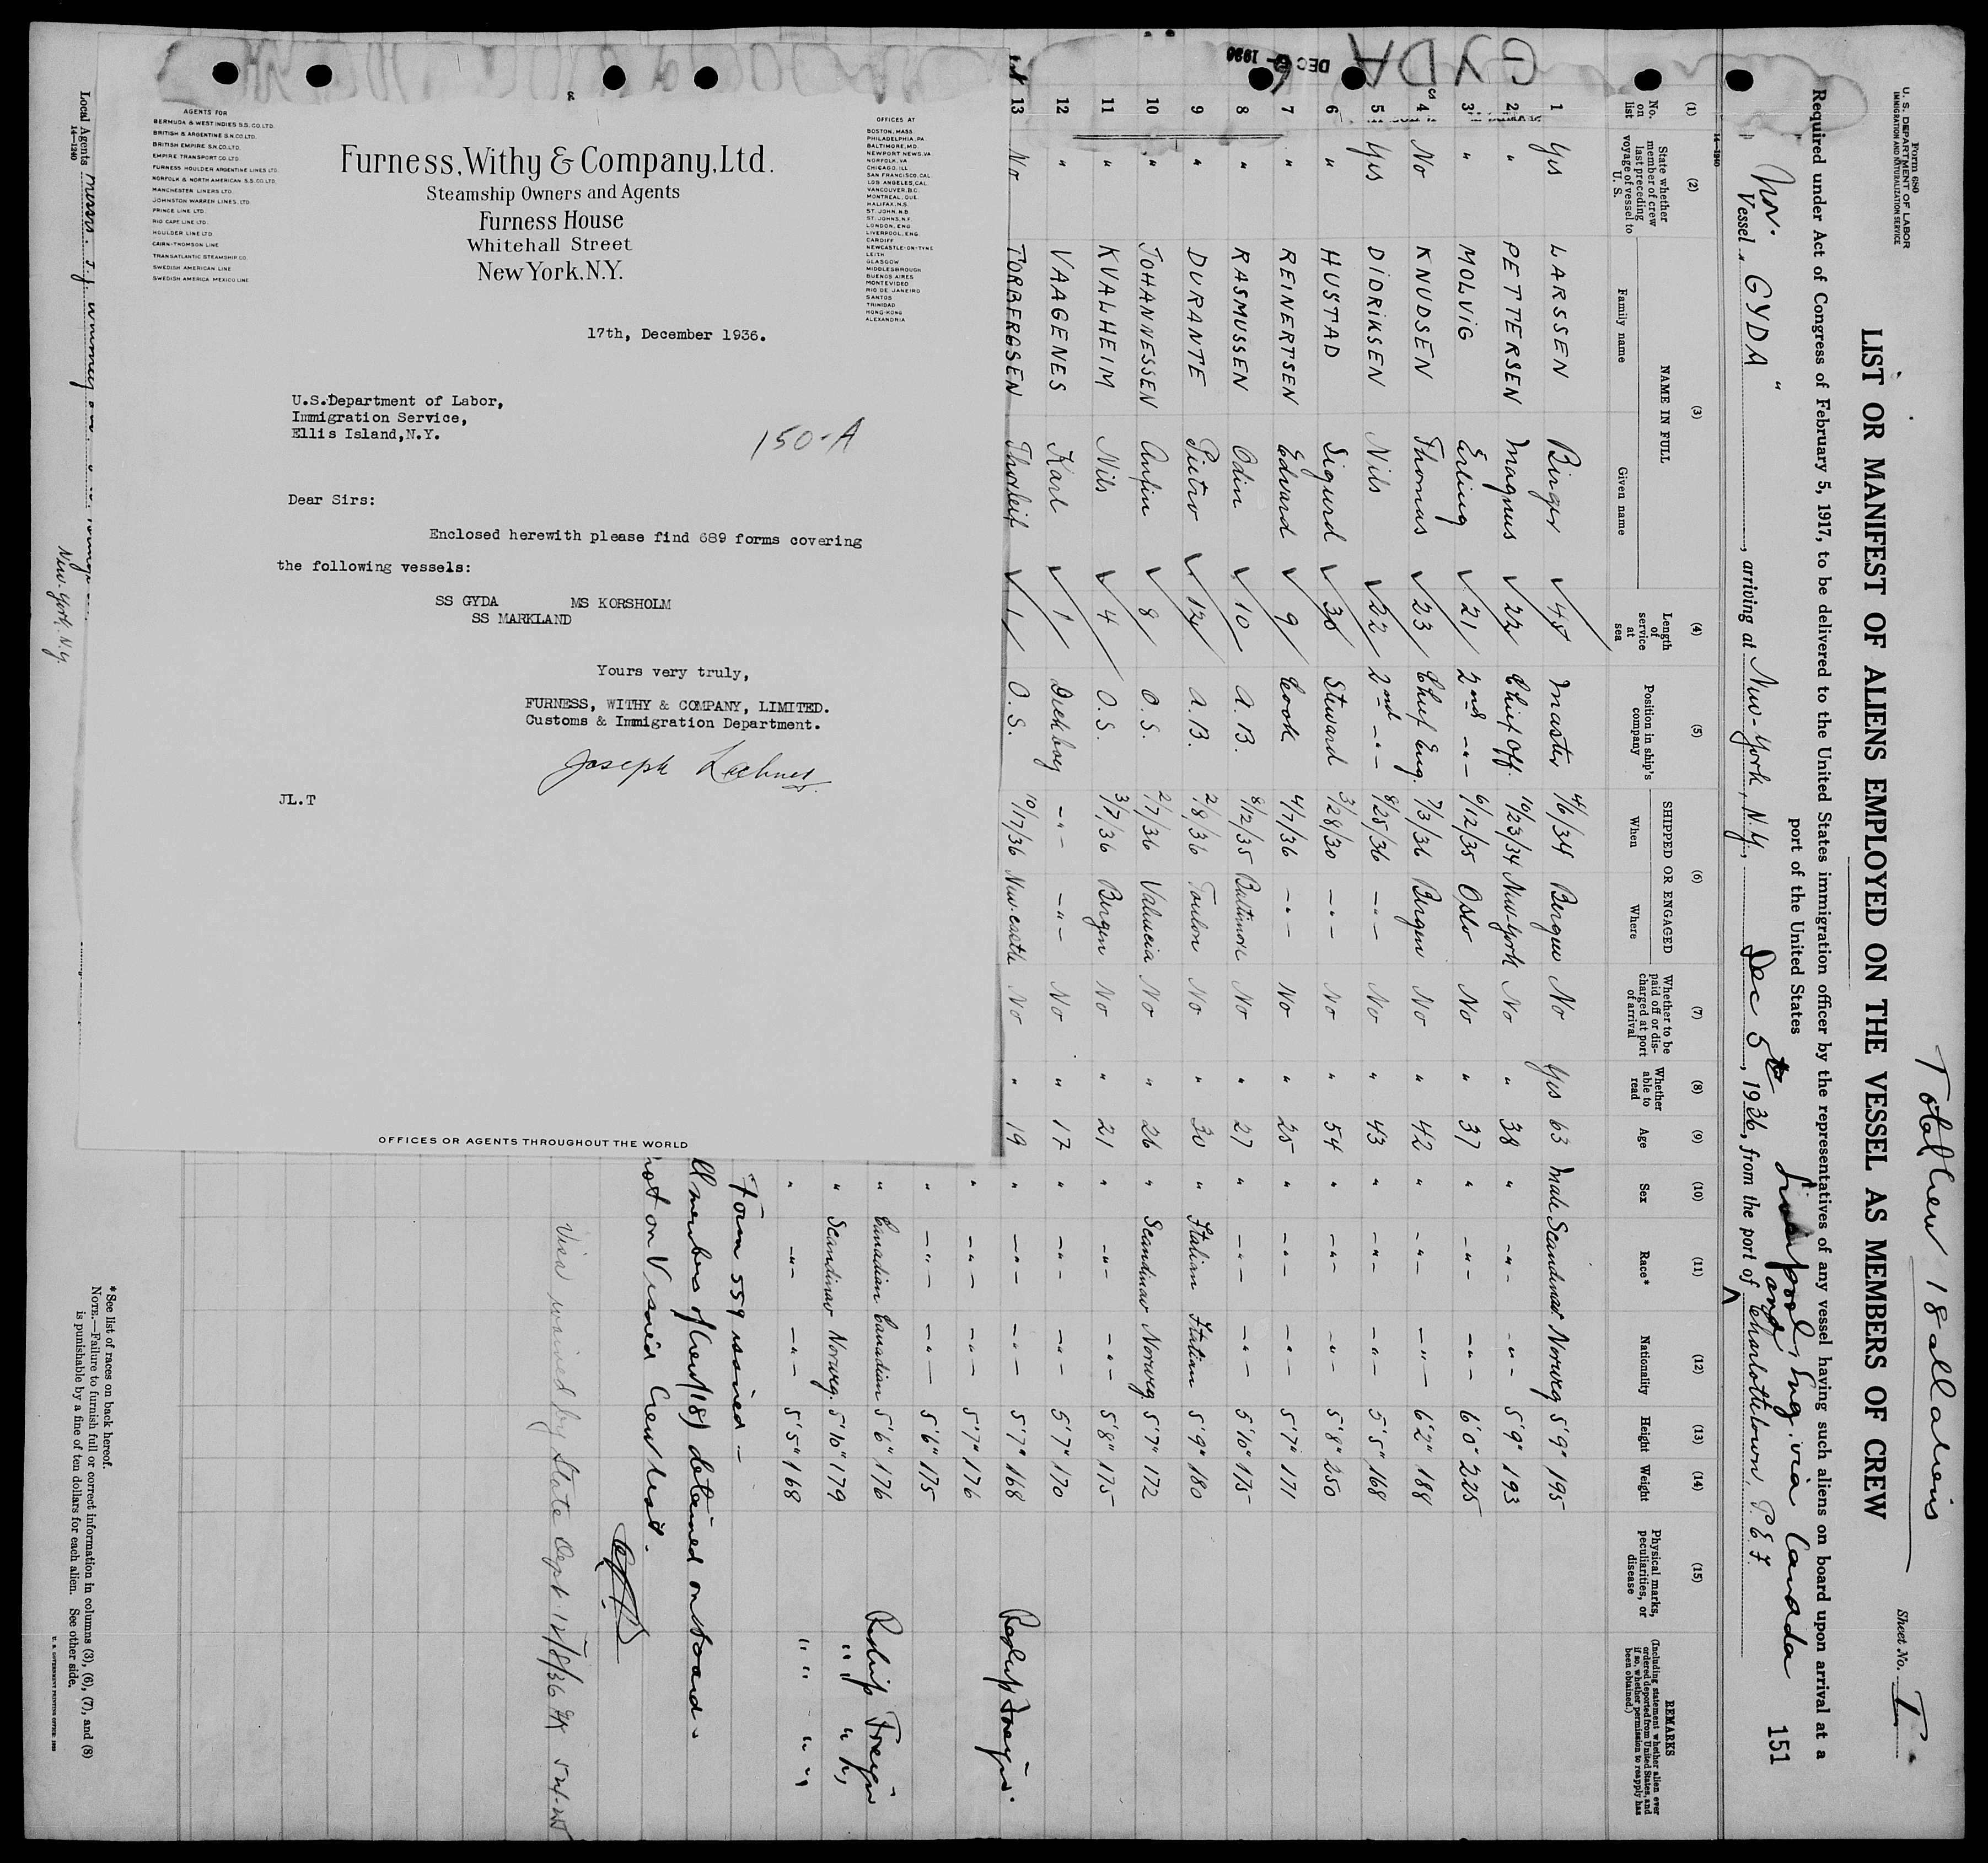 AGENTS FOR
BERMUDA & WEST INDIES S.S. CO. LTD.
BRITISH & ARGENTINE S.N. CO. LTD.
BRITISH EMPIRE S.N. CO. LTD.
EMPIRE TRANSPORT CO. LTD.
FURNESS HOULDER ARGENTINE LINES LTD.
NORFOLK & NORTH AMERICAN S.S. CO. LTD.
MANCHESTER LINERS LTD.
JOHNSTON WARREN LINES, LTD.
PRINCE LINE LTD.
RIO CAPE LINE LTD.
HOULDER LINE LTD.
CAIRN-THOMSON LINE
TRANSATLANTIC STEAMSHIP CO.
SWEDISH AMERICAN LINE
SWEDISH AMERICA MEXICO LINE
Furness, Withy & Company, Ltd.
Steamship Owners and Agents
Furness House
Whitehall Street
New York, N.Y.
OFFICES AT
BOSTON, MASS.
PHILADELPHIA, PA.
BALTIMORE, MD.
NEWPORT NEWS, VA.
NORFOLK, VA.
CHICAGO, ILL.
SAN FRANCISCO, CAL.
LOS ANGELES, CAL.
VANCOUVER, B.C.
MONTREAL, QUE.
HALIFAX, N.S.
ST. JOHN, N.B.
ST. JOHNS, N.F.
LONDON, ENG.
LIVERPOOL, ENG.
CARDIFF
NEWCASTLE-ON-TYNE
LEITH
GLASGOW
MIDDLESBROUGH
BUENOS AIRES
MONTEVIDEO
RIO DE JANEIRO
SANTOS
TRINIDAD
HONG-KONG
ALEXANDRIA
17th, December 1936.
U.S.Department of Labor,
Immigration Service,
Ellis Island,N.Y.
150-A
Dear Sirs:
Enclosed herewith please find 689 forms covering
the following vessels:
SS GYDA MS KORSHOLM
SS MARKLAND
Yours very truly,
FURNESS, WITHY & COMPANY, LIMITED.
Customs & Immigration Department.
Joseph
JL.T
OFFICES OR AGENTS THROUGHOUT THE WORLD
Form 680
U. S. DEPARTMENT OF LABOR
IMMIGRATION AND NATURALIZATION SERVICE
Total crew 18 all aliens
Sheet No. 1
LIST OR MANIFEST OF ALIENS EMPLOYED ON THE VESSEL AS MEMBERS OF CREW
Required under Act of Congress of February 5, 1917, to be delivered to the United States immigration officer by the representatives of any vessel having such aliens on board upon arrival at a
port of the United States
Liverpool, Eng. via Canada
and
151
Vessel Nw. "GYDA", arriving at New-York, N.Y., Dec 5th, 1936, from the port of Charlottetown, P.E.I.
14-1240
(1) (2) (3) (4) (5) (6) (7) (8) (9) (10) (11) (12) (13) (14) (15)
No. on list
State whether member of crew last preceding voyage of vessel to U. S.
NAME IN FULL
Family name
Given name
Length of service at sea
Position in ship's company
SHIPPED OR ENGAGED
When
Where
Whether to be paid off or discharged at port of arrival
Whether able to read
Age
Sex
Race*
Nationality
Height
Weight
Physical marks, peculiarities, or disease
REMARKS
(Including statement whether alien ever ordered deported from United States, and if so, whether permission to reapply has been obtained.)
GYDA
DEC 1936
1 Yes LARSSEN Birger 45 Master 4/6/34 Bergen No Yes 63 Male Scandinav. Norweg 5'9" 195
2 " PETTERSEN Magnus 22 Chief Off. 10/23/34 New-York No " 38 " -"- -"- 5'9" 193
3 " MOLVIG Erling 21 2nd -"- 6/12/35 Oslo No " 37 " -"- -"- 6'0" 225
4 No KNUDSEN Thomas 23 Chief Eng. 7/3/36 Bergen No " 42 " -"- -"- 6'2" 188
5 Yes DIDRIKSEN Nils 22 2nd -"- 8/25/36 -"- No " 43 " -"- -"- 5'5" 168
6 " HUSTAD Sigurd 30 Steward 3/28/30 -"- No " 54 " -"- -"- 5'8" 250
7 " REINERTSEN Edvard 9 Cook 4/7/36 -"- No " 25 " -"- -"- 5'7" 171
8 " RASMUSSEN Odin 10 A.B. 8/12/35 Baltimore No " 27 " -"- -"- 5'10" 175
9 " DURANTE Pietro 12 A.B. 2/8/36 Toulon No " 30 " Italian Italian 5'9" 180
10 " JOHANNESSEN Anfin 8 O.S. 2/7/36 Valencia No " 26 " Scandinav Norweg. 5'7" 172
11 " KVALHEIM Nils 4 O.S. 3/7/36 Bergen No " 21 " -"- -"- 5'8" 175
12 " VAAGENES Karl 1 Deckboy -"- -"- No " 17 " -"- -"- 5'7" 170
13 No TORBERGSEN Thorleif 1 O.S. 10/17/36 Newcastle No " 19 " -"- -"- 5'7" 168 Reship Foreign
" -"- -"- 5'7" 176
" -"- -"- 5'6" 175
" Canadian Canadian 5'6" 176 Reship Foreign
" Scandinav Norweg. 5'10" 179 " "
" -"- -"- 5'5" 168 " "
Form 559 issued -
All members of crew (18) detained on board -
not on Visaed Crew List.
Visa waived by State Dept. 12/8/36
*See list of races on back hereof.
NOTE.—Failure to furnish full or correct information in columns (3), (6), (7), and (8)
is punishable by a fine of ten dollars for each alien. See other side.
U. S. GOVERNMENT PRINTING OFFICE
Local Agents Messrs.
14-1240
New-York. N.Y.